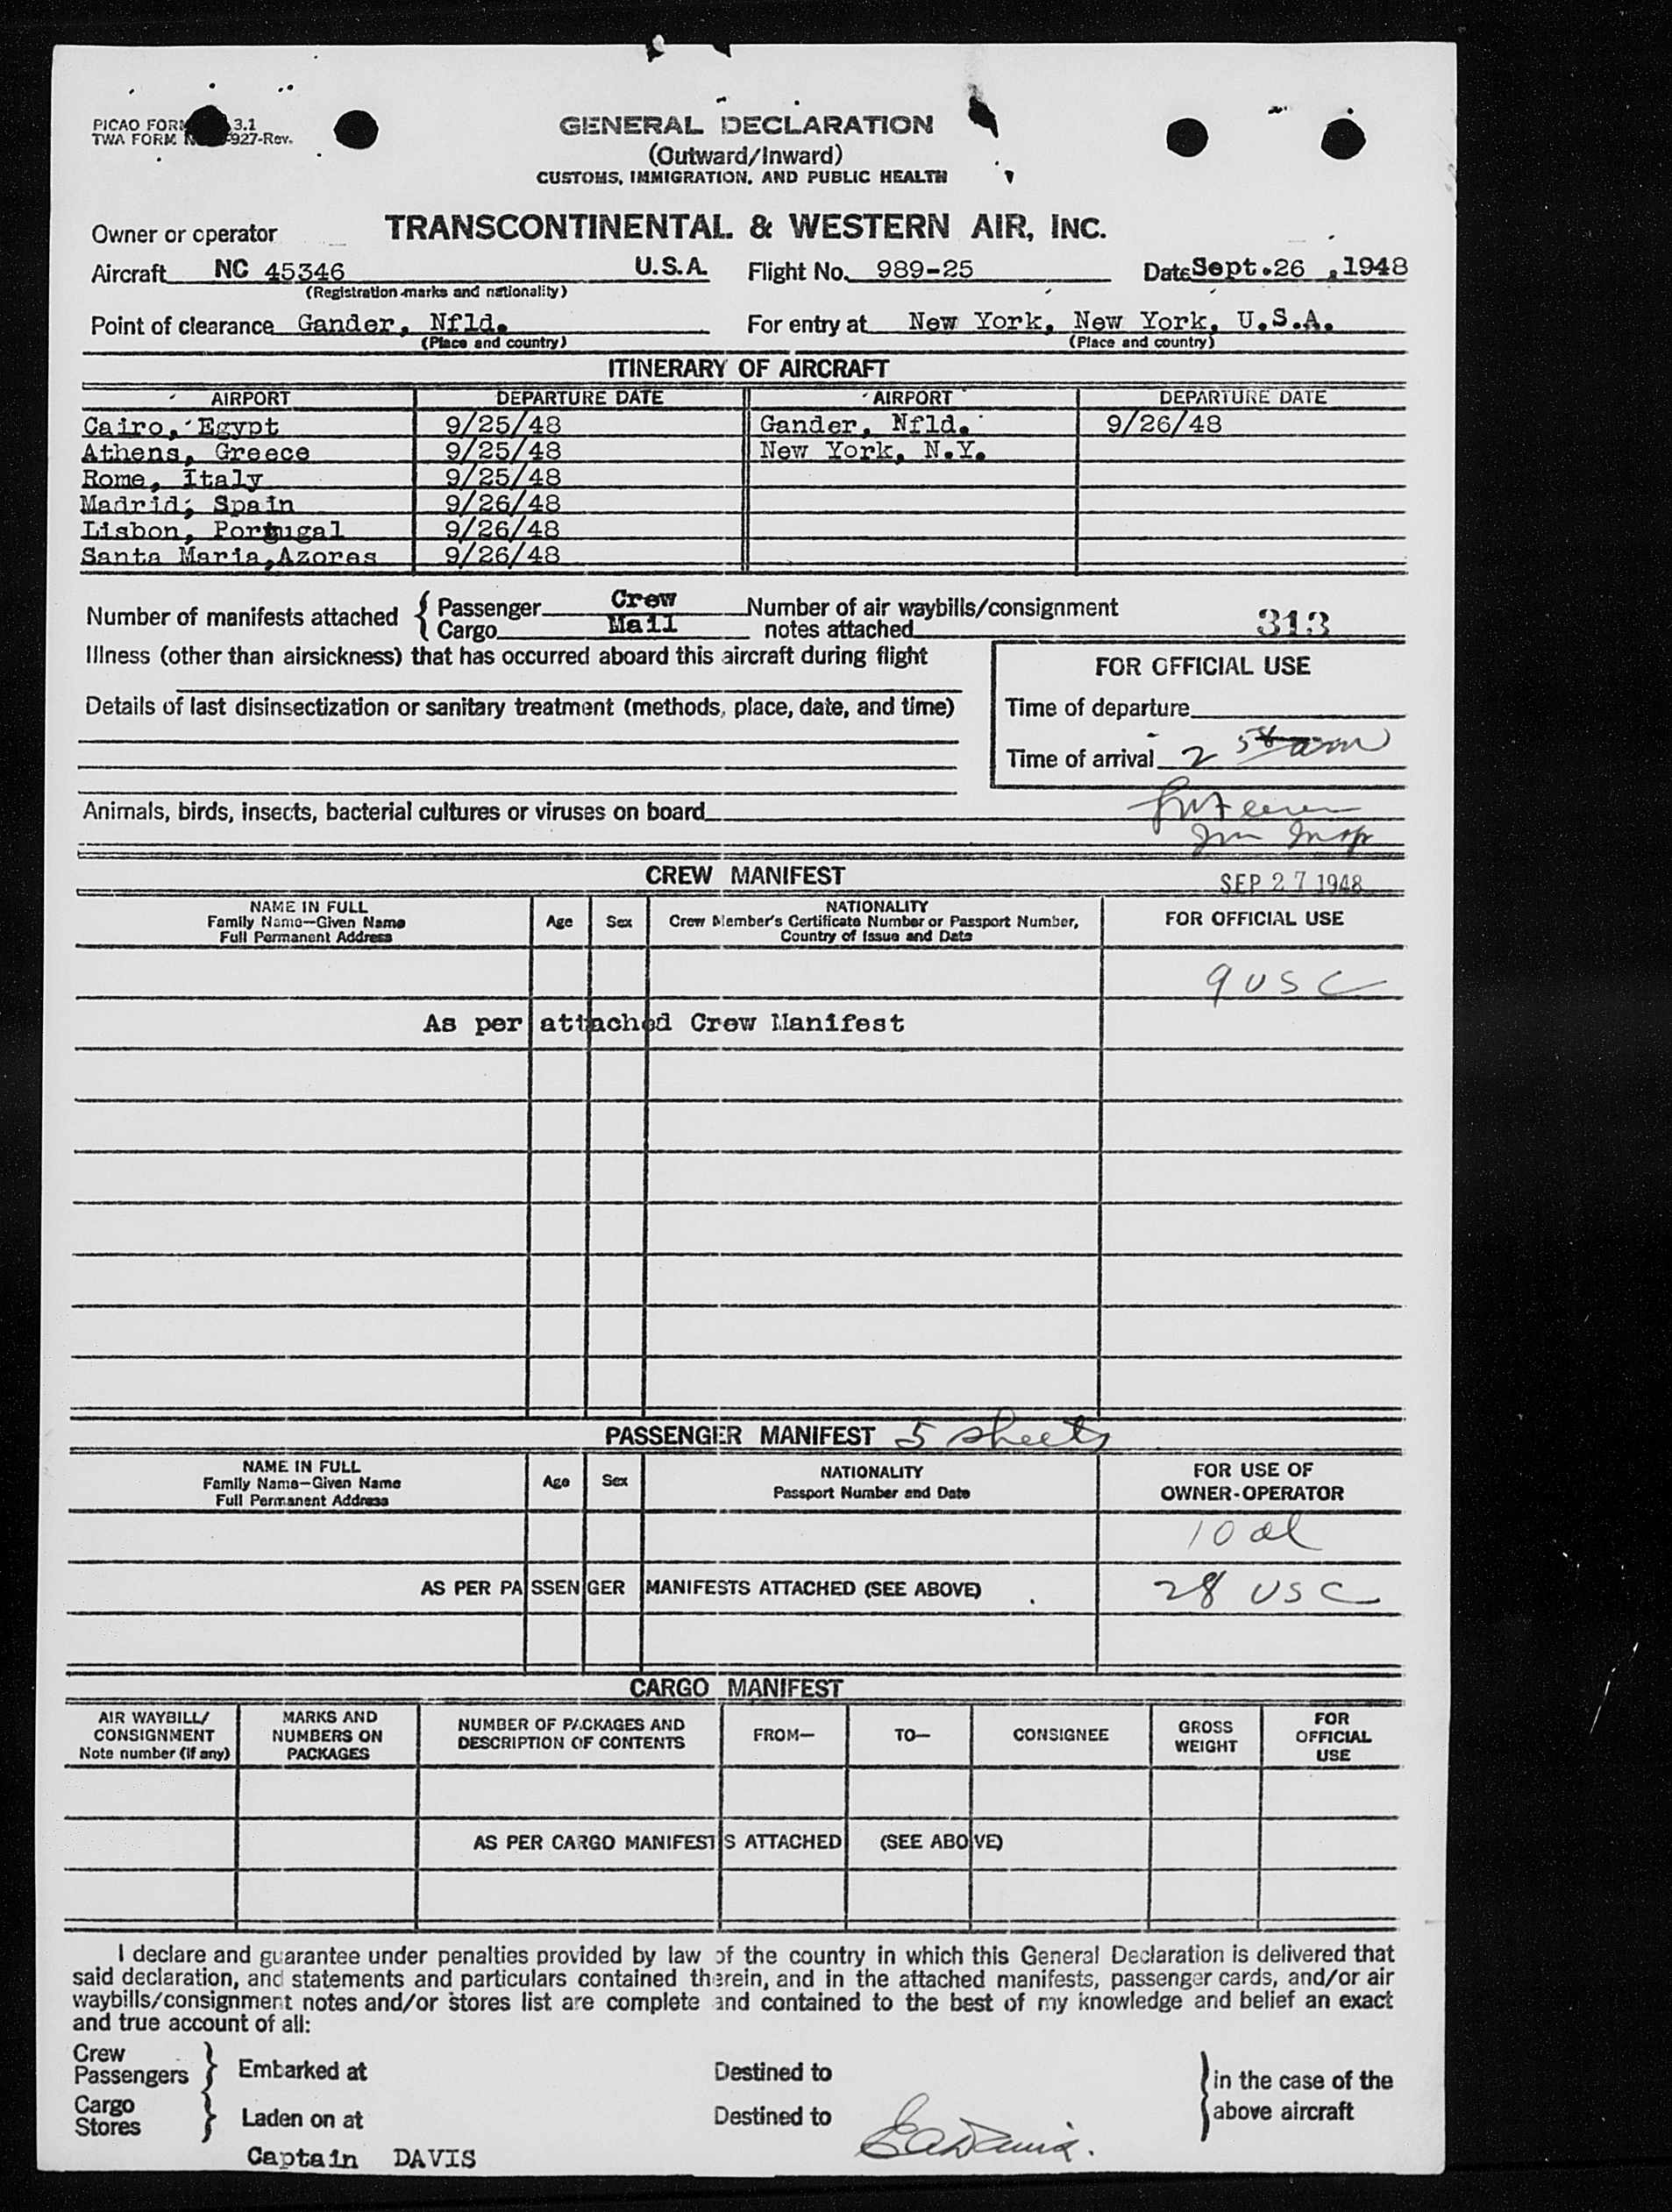 PICAO FORM 3.1
TWA FORM 927-Rev.
GENERAL DECLARATION
(Outward/Inward)
CUSTOMS, IMMIGRATION, AND PUBLIC HEALTH
Owner or operator TRANSCONTINENTAL & WESTERN AIR, INC.
Aircraft NC 45346 U.S.A. Flight No. 989-25 Date Sept.26, 1948
(Registration marks and nationality)
Point of clearance Gander, Nfld. For entry at New York, New York, U.S.A.
(Place and country) (Place and country)
ITINERARY OF AIRCRAFT
AIRPORT DEPARTURE DATE AIRPORT DEPARTURE DATE
Cairo, Egypt 9/25/48 Gander, Nfld. 9/26/48
Athens, Greece 9/25/48 New York, N.Y.
Rome, Italy 9/25/48
Madrid, Spain 9/26/48
Lisbon, Portugal 9/26/48
Santa Maria,Azores 9/26/48
Number of manifests attached { Passenger Crew Number of air waybills/consignment
Cargo Mail notes attached 313
Illness (other than airsickness) that has occurred aboard this aircraft during flight
FOR OFFICIAL USE
Details of last disinsectization or sanitary treatment (methods, place, date, and time)
Time of departure
Time of arrival 2 58 am
Animals, birds, insects, bacterial cultures or viruses on board
Imm Insp
CREW MANIFEST SEP 27 1948
NAME IN FULL
Family Name—Given Name
Full Permanent Address
Age Sex
NATIONALITY
Crew Member's Certificate Number or Passport Number,
Country of Issue and Date
FOR OFFICIAL USE
9 USC
As per attached Crew Manifest
PASSENGER MANIFEST 5 sheets
NAME IN FULL
Family Name—Given Name
Full Permanent Address
Age Sex
NATIONALITY
Passport Number and Date
FOR USE OF
OWNER-OPERATOR
10 al
AS PER PASSENGER MANIFESTS ATTACHED (SEE ABOVE) 28 USC
CARGO MANIFEST
AIR WAYBILL/
CONSIGNMENT
Note number (if any)
MARKS AND
NUMBERS ON
PACKAGES
NUMBER OF PACKAGES AND
DESCRIPTION OF CONTENTS
FROM— TO— CONSIGNEE
GROSS
WEIGHT
FOR
OFFICIAL
USE
AS PER CARGO MANIFESTS ATTACHED (SEE ABOVE)
I declare and guarantee under penalties provided by law of the country in which this General Declaration is delivered that
said declaration, and statements and particulars contained therein, and in the attached manifests, passenger cards, and/or air
waybills/consignment notes and/or stores list are complete and contained to the best of my knowledge and belief an exact
and true account of all:
Crew
Passengers } Embarked at Destined to } in the case of the
Cargo
Stores } Laden on at Destined to above aircraft
Captain DAVIS